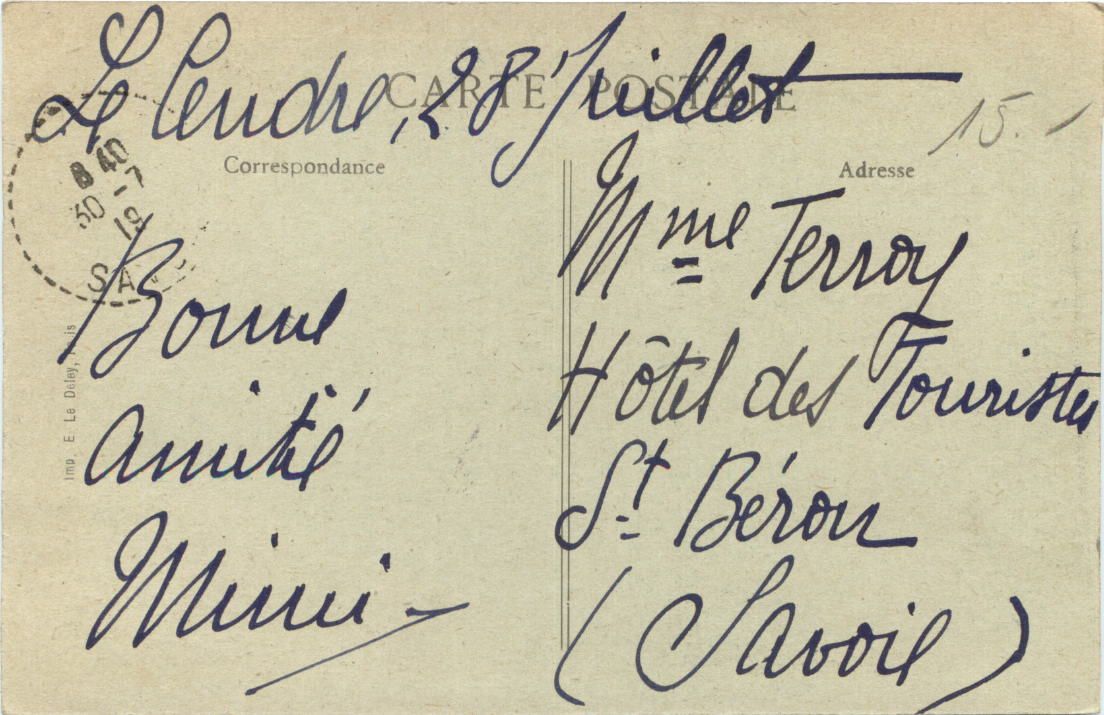 Le Cendre, 28 Juillet
CARTE POSTALE
15.-
Correspondance
Adresse
8 40
30 -7
19
SAV
Mme Terroy
Hôtel des Touristes
St. Béron
(Savoie)
Bonne
amitié
Mimi
Imp. E. Le Deley,